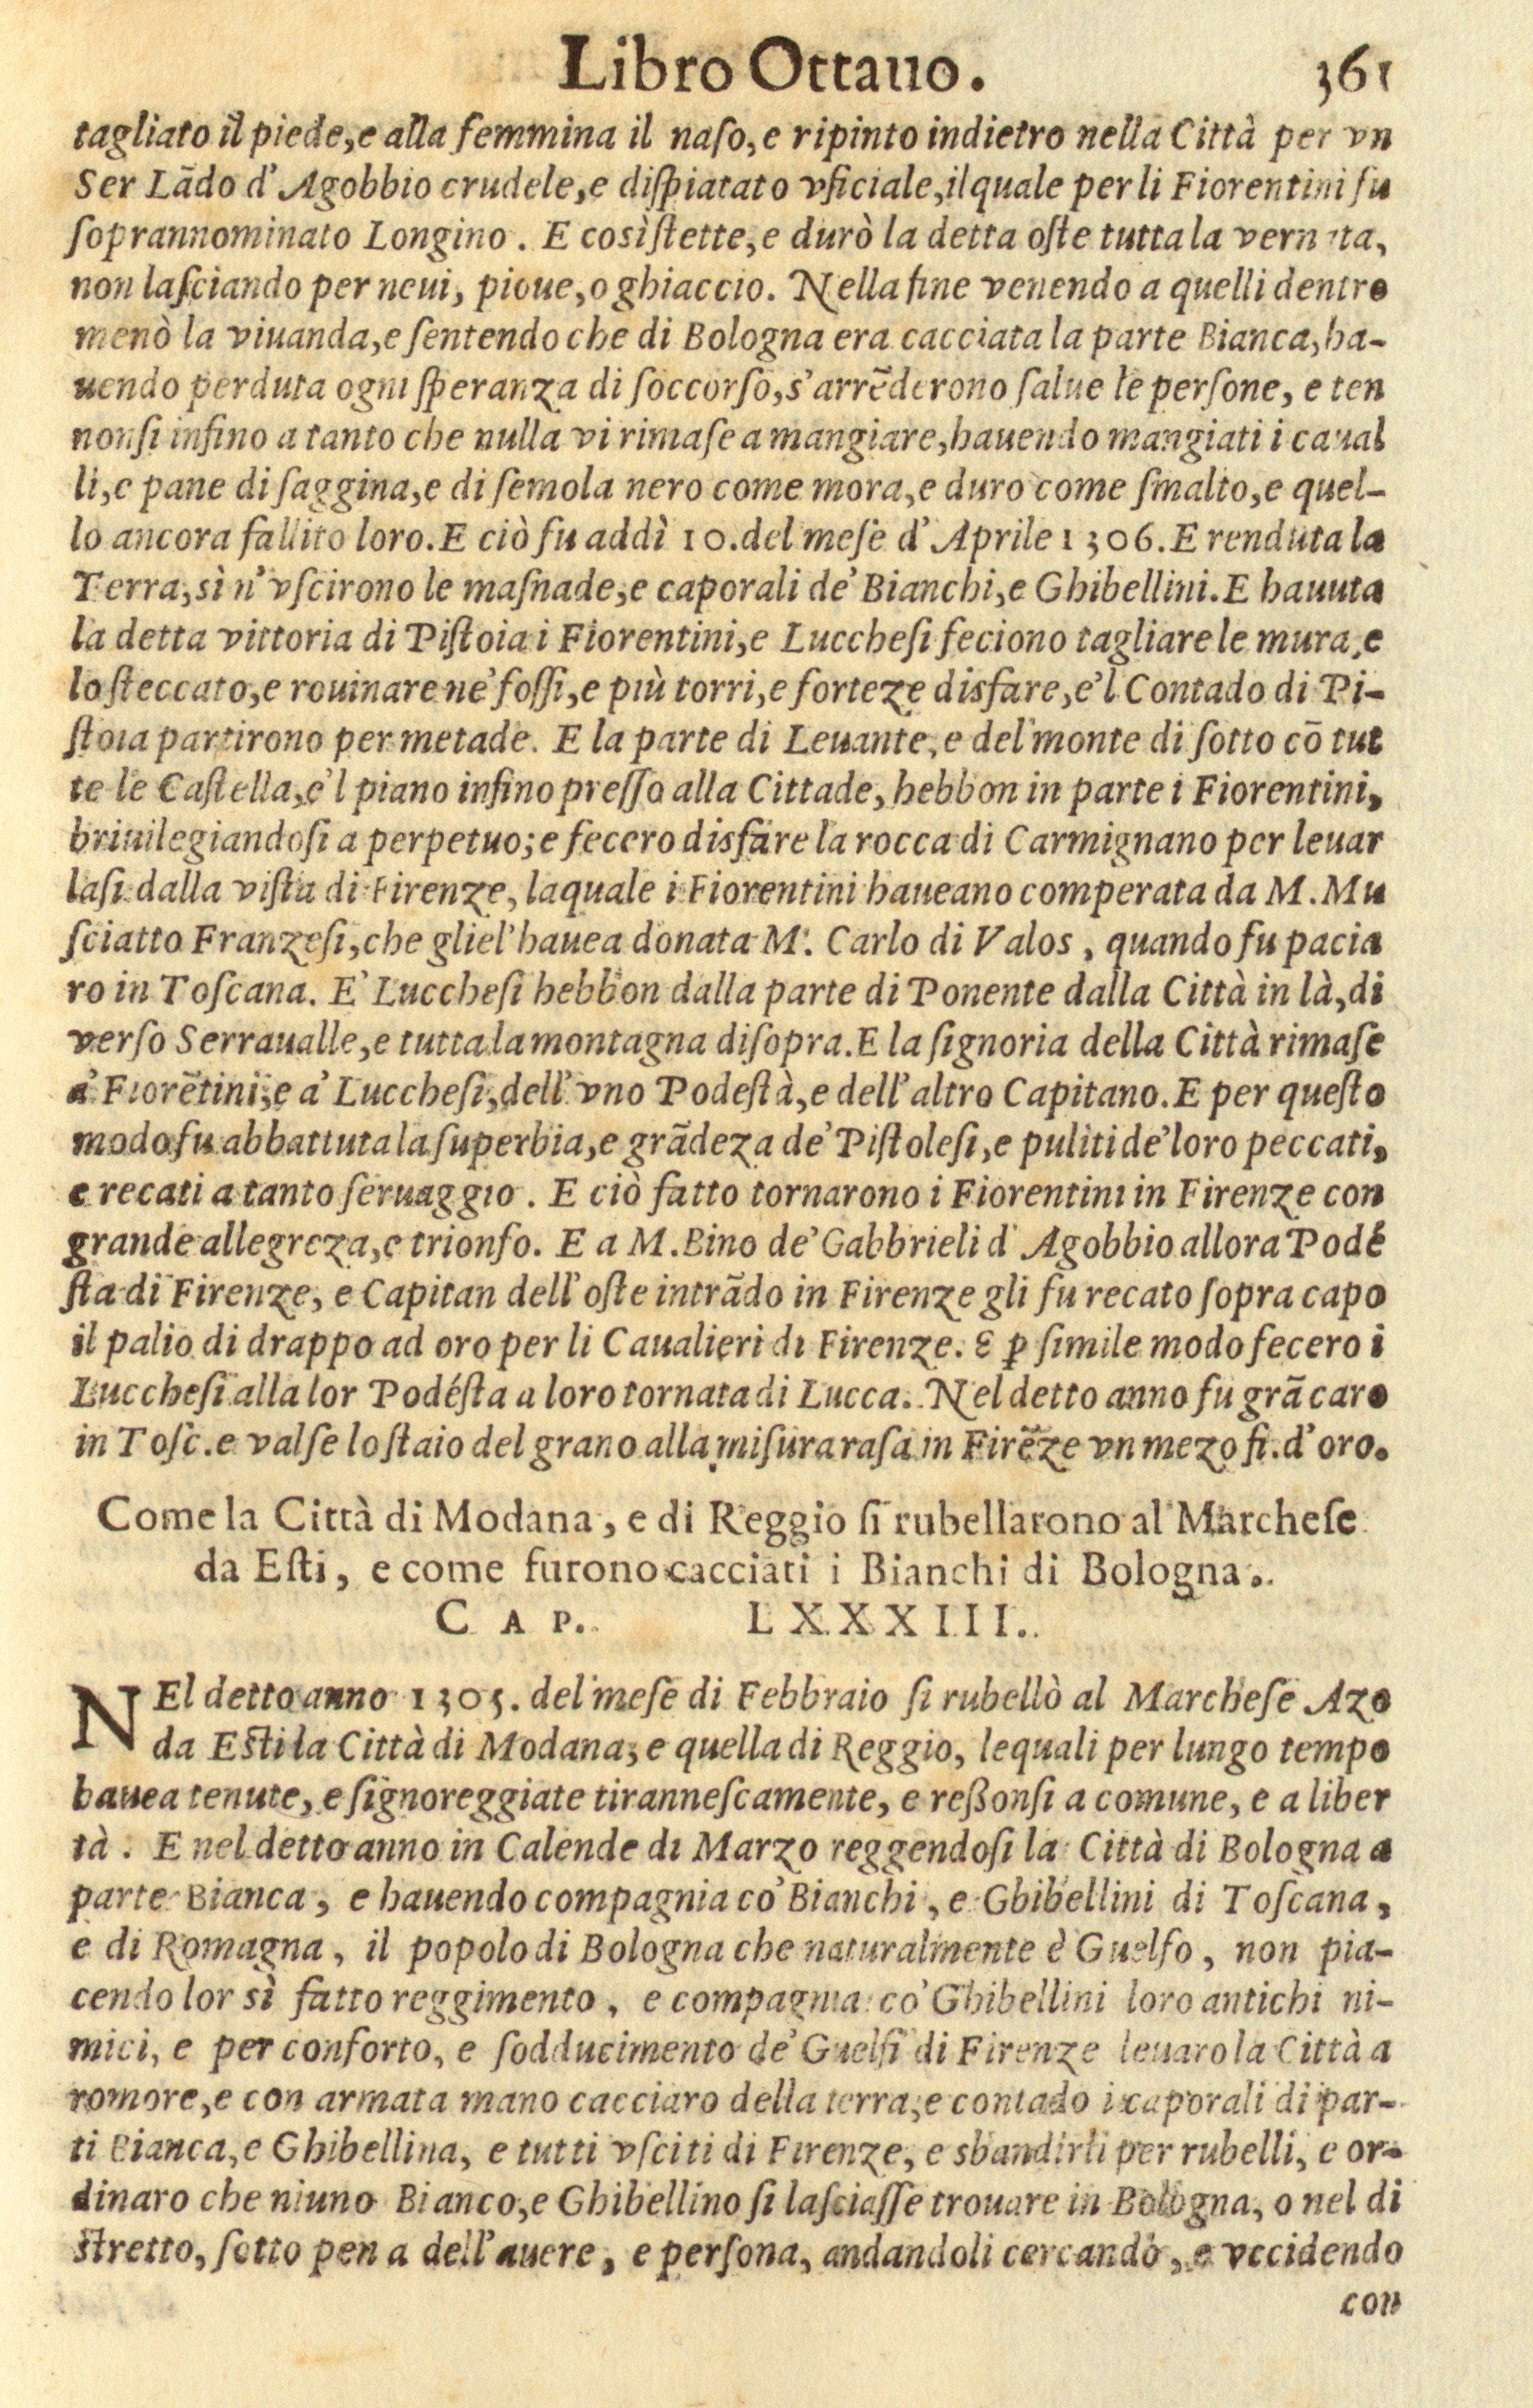 Libro Ottauo. 361
tagliato il piede, e alla femmina il naſo, e ripinto indietro nella Città per vn
Ser Lādo d'Agobbio crudele, e diſpiatato vficiale, ilquale per li Fiorentini fu
ſoprannominato Longino. E così ſtette, e durò la detta oſte tutta la vernata,
non laſciando per neui, pioue, o ghiaccio. Nella fine venendo a quelli dentro
menò la viuanda, e ſentendo che di Bologna era cacciata la parte Bianca, ha-
uendo perduta ogni ſperanza di ſoccorſo, s'arrēderono ſalue le perſone, e ten
nonſi infino a tanto che nulla vi rimaſe a mangiare, hauendo mangiati i caual
li, e pane di ſaggina, e di ſemola nero come mora, e duro come ſmalto, e quel-
lo ancora fallito loro. E ciò fu addì 10. del meſe d'Aprile 1306. E renduta la
Terra, sì n'vſcirono le maſnade, e caporali de' Bianchi, e Ghibellini. E hauuta
la detta vittoria di Piſtoia i Fiorentini, e Luccheſi feciono tagliare le mura, e
lo ſteccato, e rouinare ne' foſſi, e più torri, e forteze disfare, e'l Contado di Pi-
ſtoia partirono per metade. E la parte di Leuante, e del monte di ſotto cō tut
te le Caſtella, e'l piano infino preſſo alla Cittade, hebbon in parte i Fiorentini,
briuilegiandoſi a perpetuo; e fecero disfare la rocca di Carmignano per leuar
laſi dalla viſta di Firenze, laquale i Fiorentini haueano comperata da M. Mu
ſciatto Franzeſi, che gliel'hauea donata M. Carlo di Valos, quando fu pacia
ro in Toſcana. E' Luccheſi hebbon dalla parte di Ponente dalla Città in là, di
verſo Serraualle, e tutta la montagna diſopra. E la ſignoria della Città rimaſe
a' Fiorētini, e a' Luccheſi, dell'vno Podeſtà, e dell'altro Capitano. E per queſto
modo fu abbattuta la ſuperbia, e grādeza de' Piſtoleſi, e puliti de' loro peccati,
e recati a tanto ſeruaggio. E ciò fatto tornarono i Fiorentini in Firenze con
grande allegreza, e trionfo. E a M. Bino de' Gabbrieli d'Agobbio allora Podé
ſta di Firenze, e Capitan dell'oſte intrādo in Firenze gli fu recato ſopra capo
il palio di drappo ad oro per li Caualieri di Firenze. E ꝑ ſimile modo fecero i
Luccheſi alla lor Podéſta a loro tornata di Lucca. Nel detto anno fu grā caro
in Toſc. e valſe lo ſtaio del grano alla miſura raſa in Firēze vn mezo fi. d'oro.
Come la Città di Modana, e di Reggio ſi rubellarono al Marcheſe
da Eſti, e come furono cacciati i Bianchi di Bologna.
CAP. LXXXIII.
NEl detto anno 1305. del meſe di Febbraio ſi rubellò al Marcheſe Azo
da Eſti la Città di Modana, e quella di Reggio, lequali per lungo tempo
hauea tenute, e ſignoreggiate tirannеſcamente, e reßonſi a comune, e a liber
tà. E nel detto anno in Calende di Marzo reggendoſi la Città di Bologna a
parte Bianca, e hauendo compagnia co' Bianchi, e Ghibellini di Toſcana,
e di Romagna, il popolo di Bologna che naturalmente è Guelfo, non pia-
cendo lor sì fatto reggimento, e compagnia co' Ghibellini loro antichi ni-
mici, e per conforto, e ſodducimento de' Guelfi di Firenze leuaro la Città a
romore, e con armata mano cacciaro della terra, e contado i caporali di par-
ti Bianca, e Ghibellina, e tutti vſciti di Firenze, e sbandirli per rubelli, e or-
dinaro che niuno Bianco, e Ghibellino ſi laſciaſſe trouare in Bologna, o nel di
ſtretto, ſotto pena dell'auere, e perſona, andandoli cercando, e vccidendo
con